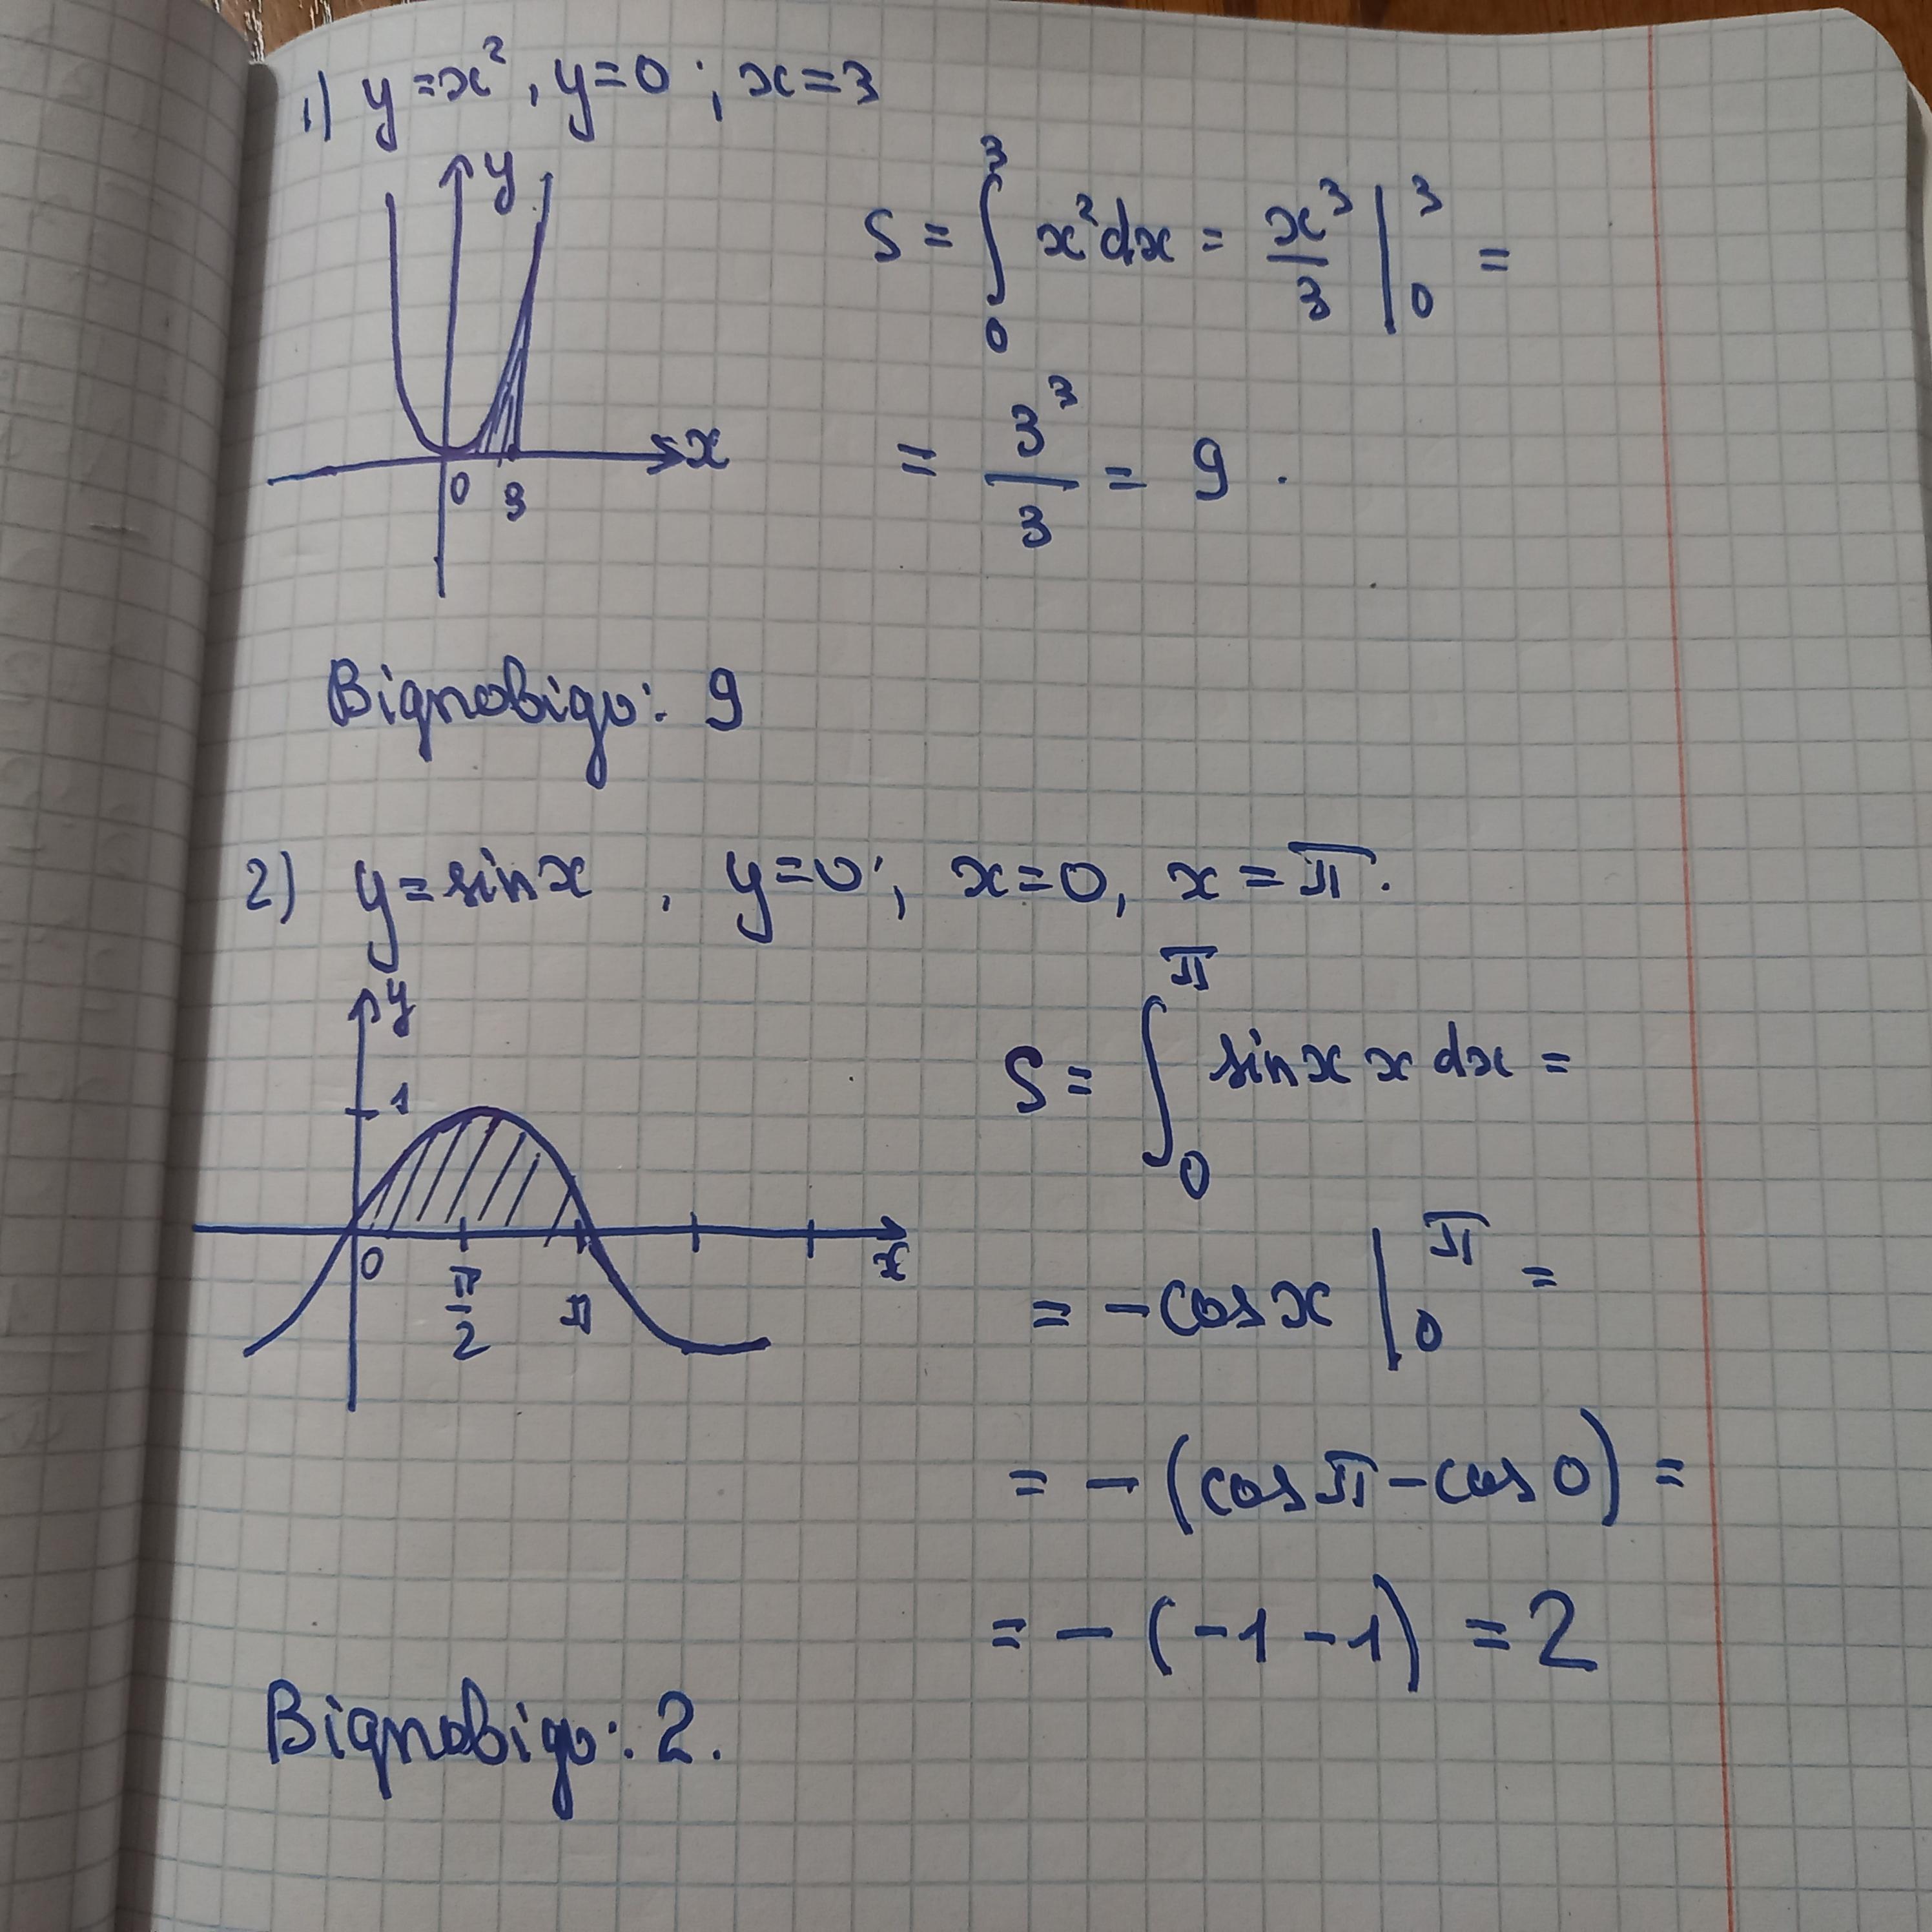 1) y=x², y=0; x=3
y
S = ∫₀³ x²dx = x³/3 |₀³ =
x
0 3
= 3³/3 = 9.
Відповідь: 9
2) y=sinx, y=0; x=0, x=π.
y
1
S = ∫₀^π sinx x dx =
0 π/2 π x
= -cosx |₀^π =
= -(cosπ-cos0) =
= -(-1-1) = 2
Відповідь: 2.